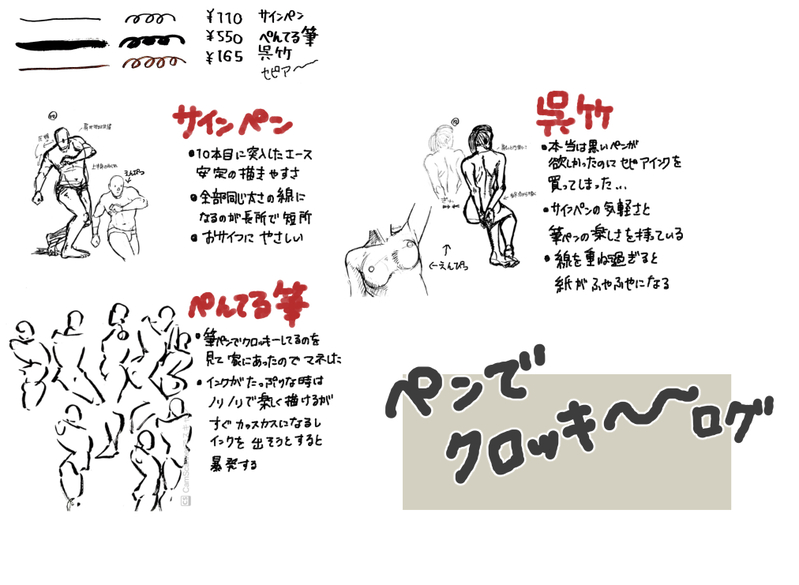 ¥110 サインペン
¥550 ぺんてる筆
¥165 呉竹
セピア〜
サインペン
●10本目に突入したエース
安定の描きやすさ
●全部同じ太さの線に
なるのが長所で短所
●おサイフに やさしい
えんぴつ
呉竹
●本当は黒いペンが
欲しかったのに セピアインクを
買ってしまった...
●サインペンの気軽さと
筆ペンの楽しさを持っている
●線を重ね過ぎると
紙が ふやふやになる
↑
←えんぴつ
ぺんてる筆
●筆ペンでクロッキーしてるのを
見て 家にあったので マネした
●インクが たっぷりな時は
ノリノリで楽しく描けるが
すぐ カッスカスになるし
インクを 出そうとすると
暴発する
ペンで
クロッキ〜〜ログ